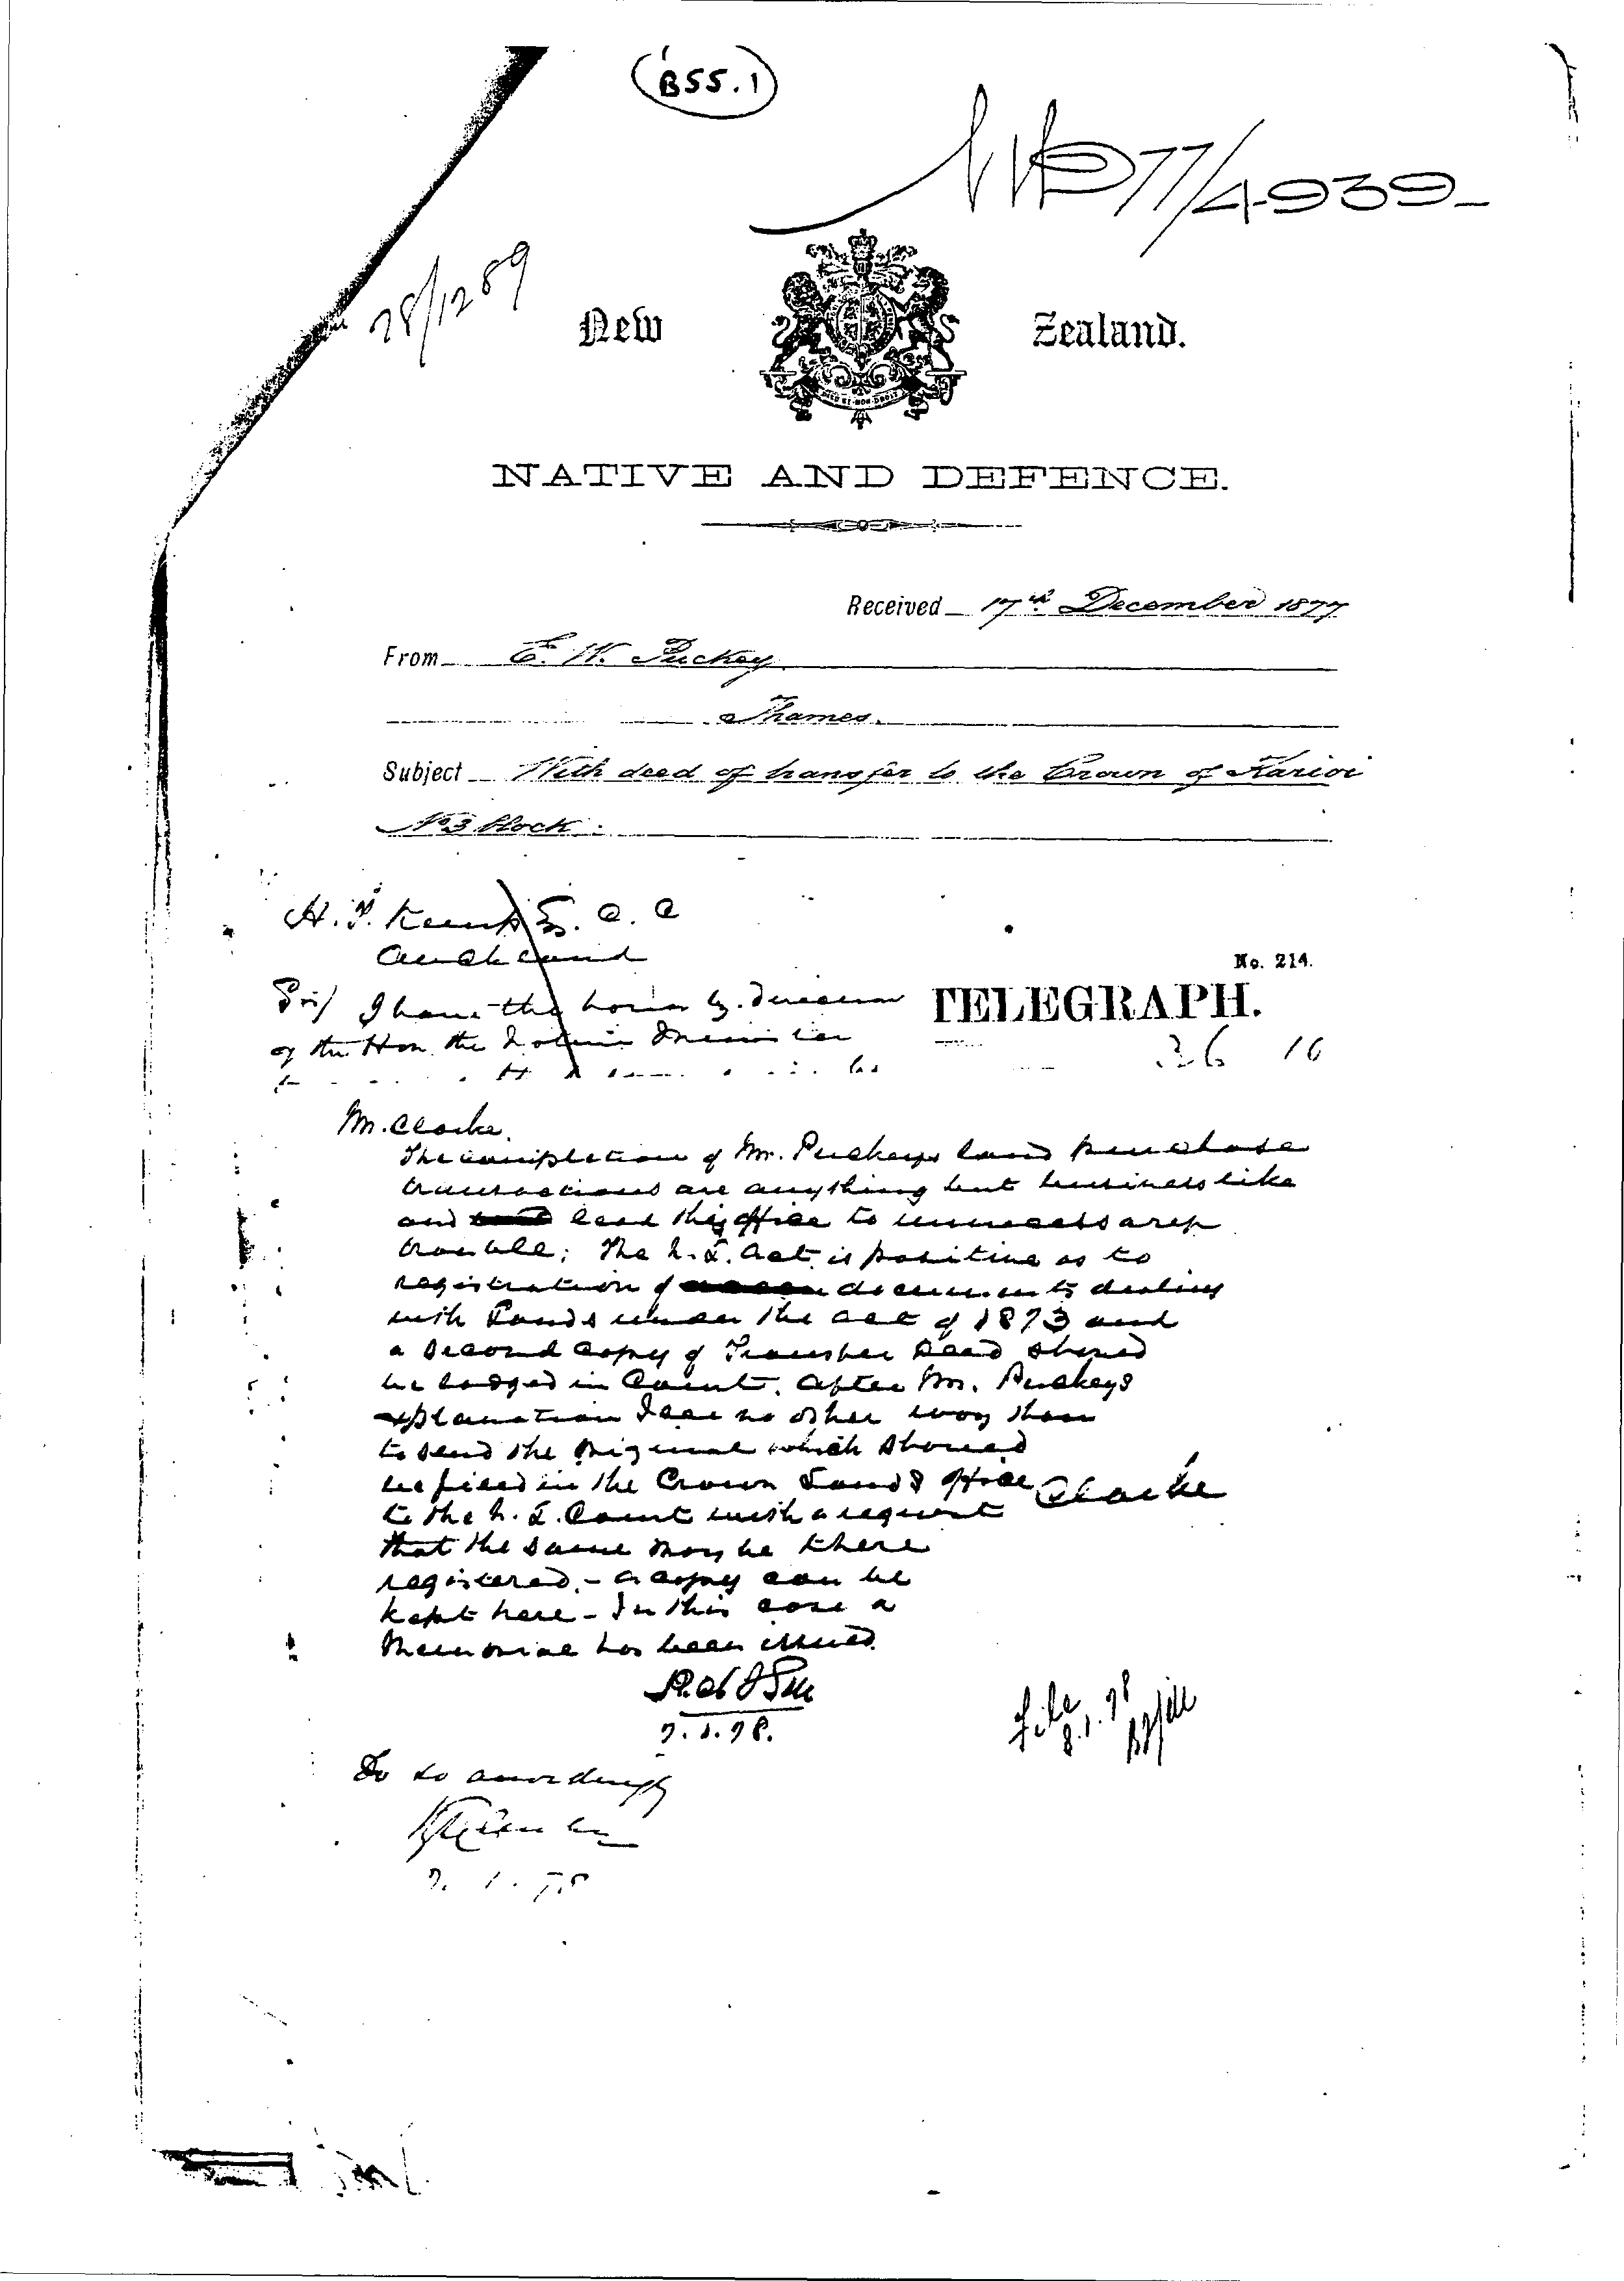 B55.1
NLP 77/4939
28/12 89
New Zealand.
NATIVE AND DEFENCE.
Received 17th December 1877
From E. W. Puckey
Thames.
Subject With deed of transfer to the Crown of Karioi
No 3 block.
H. T. Kemp Esq. C. C
Auckland
Sir/ I have the honor by direction
of the Hon. the Native Minister
No. 214.
TELEGRAPH.
26 16
Mr. Clarke.
The completion of Mr. Puckeys land purchase
transactions are anything but business like
and lead this office to unnecessary
trouble; The N. L. Act is positive as to
registration of documents dealing
with Lands under the act of 1873 and
a second copy of Transfer Deed should
be lodged in Court. After Mr. Puckeys
explanation I see no other way than
to send the original which should
be filed in the Crown Lands Office
to the N. L. Court with a request
that the same may be there
registered, - a copy can be
kept here - In this case a
Memorial has been issued.
Clarke
7.1.78.
file
8.1.78
Do so accordingly
7.1.78